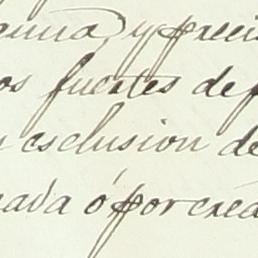 y preci
os fuertes de p
esclusion de
nada ó por crea